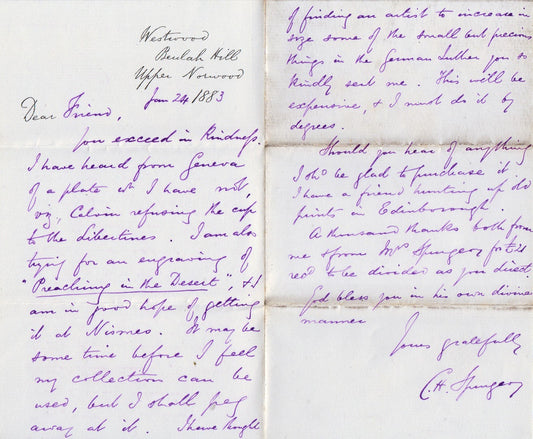 Westwood
Beulah Hill
Upper Norwood
Jan 24 1883
Dear Friend,
You exceed in kindness.
I have heard from Geneva
of a plate wh I have not,
viz, Calvin refusing the cup
to the Libertines. I am also
trying for an engraving of
"Preaching in the Desert", & I
am in good hope of getting
it at Nismes. It may be
some time before I feel
my collection can be
used, but I shall peg
away at it. I have thought
of finding an artist to increase in
size some of the small but precious
things in the German Luther you so
kindly sent me. This will be
expensive, & I must do it by
degrees.
Should you hear of anything
I shd be glad to purchase it.
I have a friend hunting up old
prints in Edinborough
A thousand thanks both from
me & from Mrs Spurgeon for
recd to be divided as you direct
God bless you in his own divine
manner
Yours gratefully
C. H. Spurgeon